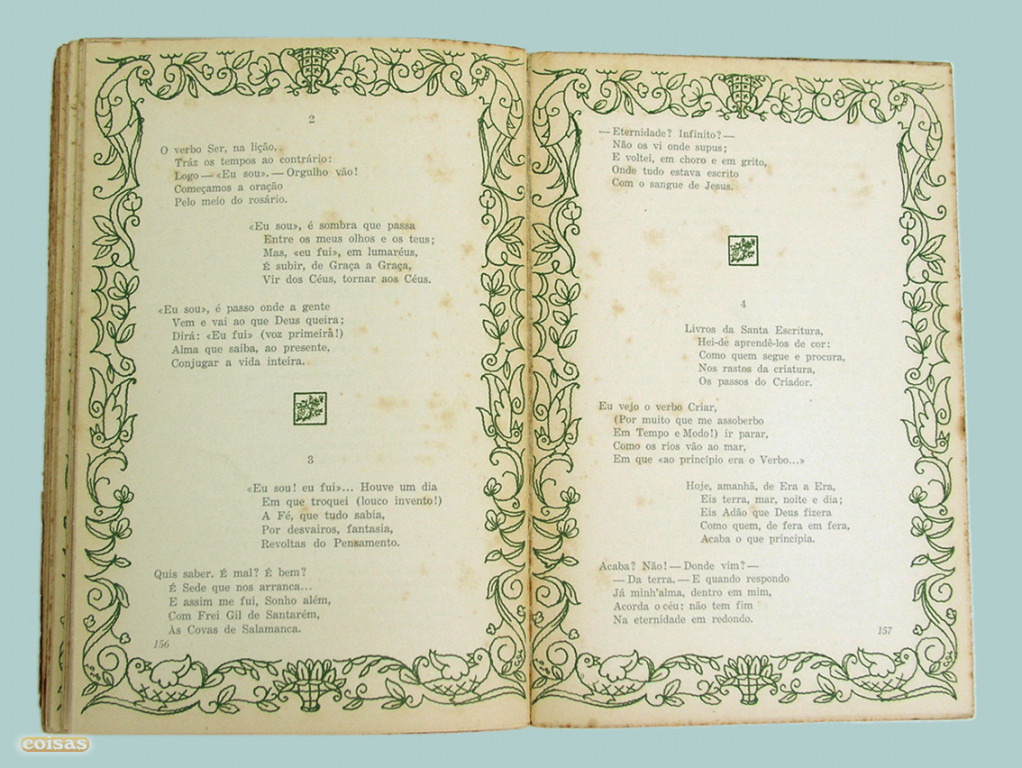 2
O verbo Ser, na lição,
Tráz os tempos ao contrário:
Logo — «Eu sou». — Orgulho vão!
Começamos a oração
Pelo meio do rosário.
«Eu sou», é sombra que passa
Entre os meus olhos e os teus;
Mas, «eu fui», em lumaréus,
É subir, de Graça a Graça,
Vir dos Céus, tornar aos Céus.
«Eu sou», é passo onde a gente
Vem e vai ao que Deus queira;
Dirá: «Eu fui» (voz primeira!)
Alma que saiba, ao presente,
Conjugar a vida inteira.
3
«Eu sou! eu fui»... Houve um dia
Em que troquei (louco invento!)
A Fé, que tudo sabia,
Por desvairos, fantasia,
Revoltas do Pensamento.
Quis saber. É mal? É bem?
É Sede que nos arranca...
E assim me fui, Sonho além,
Com Frei Gil de Santarém,
Às Covas de Salamanca.
156
— Eternidade? Infinito? —
Não os vi onde supus;
E voltei, em choro e em grito,
Onde tudo estava escrito
Com o sangue de Jesus.
4
Livros da Santa Escritura,
Hei-de aprendê-los de cor:
Como quem segue e procura,
Nos rastos da criatura,
Os passos do Criador.
Eu vejo o verbo Criar,
(Por muito que me assoberbo
Em Tempo e Modo!) ir parar,
Como os rios vão ao mar,
Em que «ao princípio era o Verbo...»
Hoje, amanhã, de Era a Era,
Eis terra, mar, noite e dia;
Eis Adão que Deus fizera
Como quem, de fera em fera,
Acaba o que principia.
Acaba? Não! — Donde vim? —
— Da terra. — E quando respondo
Já minh'alma, dentro em mim,
Acorda o céu: não tem fim
Na eternidade em redondo.
157
coisas